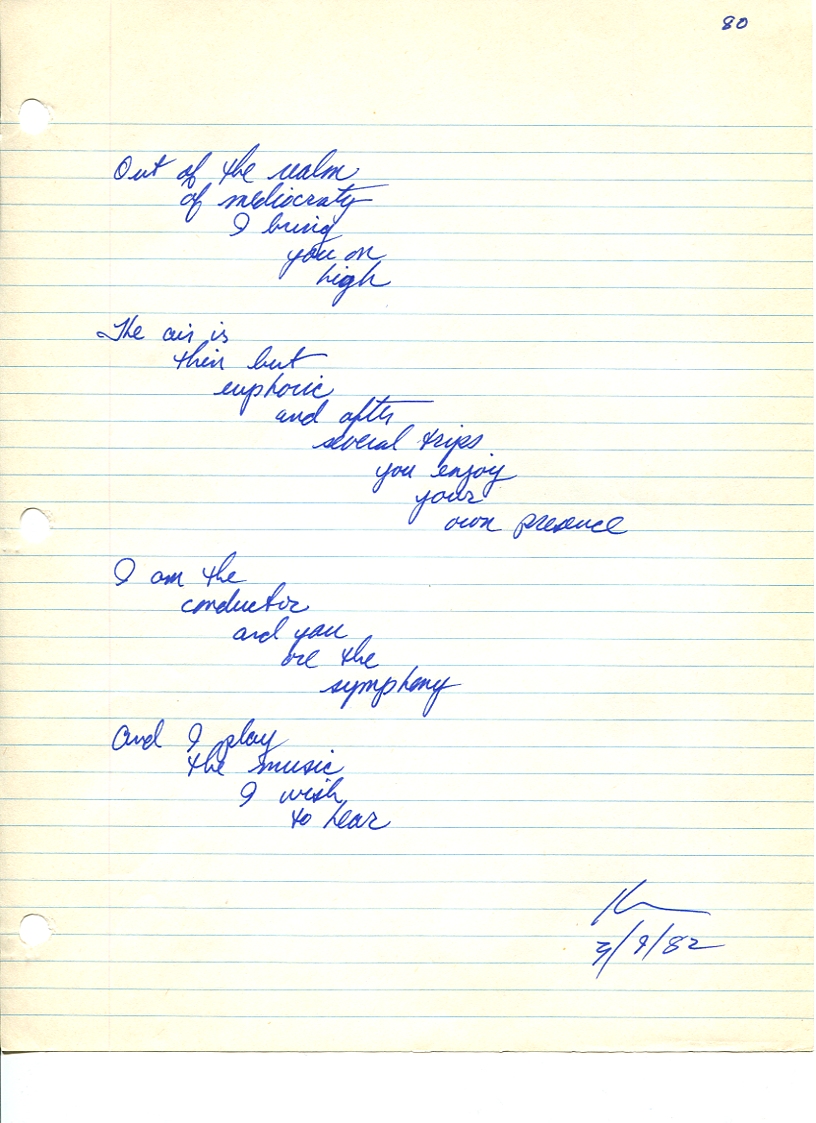 80
Out of the realm
of mediocraty
I bring
you on
high
The air is
thin but
euphoric
and after
several trips
you enjoy
your
own presence
I am the
conductor
and you
are the
symphony
And I play
the music
I wish
to hear
3/9/82